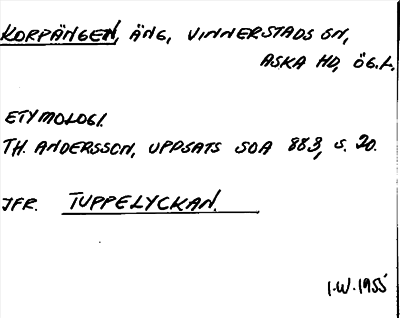 KORPÄNGEN, ÄNG, VINNERSTADS SN,
ASKA HD, ÖG.L.
ETYMOLOGI.
TH. ANDERSSON, UPPSATS SOA 883, S. 20.
JFR. TUPPELYCKAN.
I.W. 1955